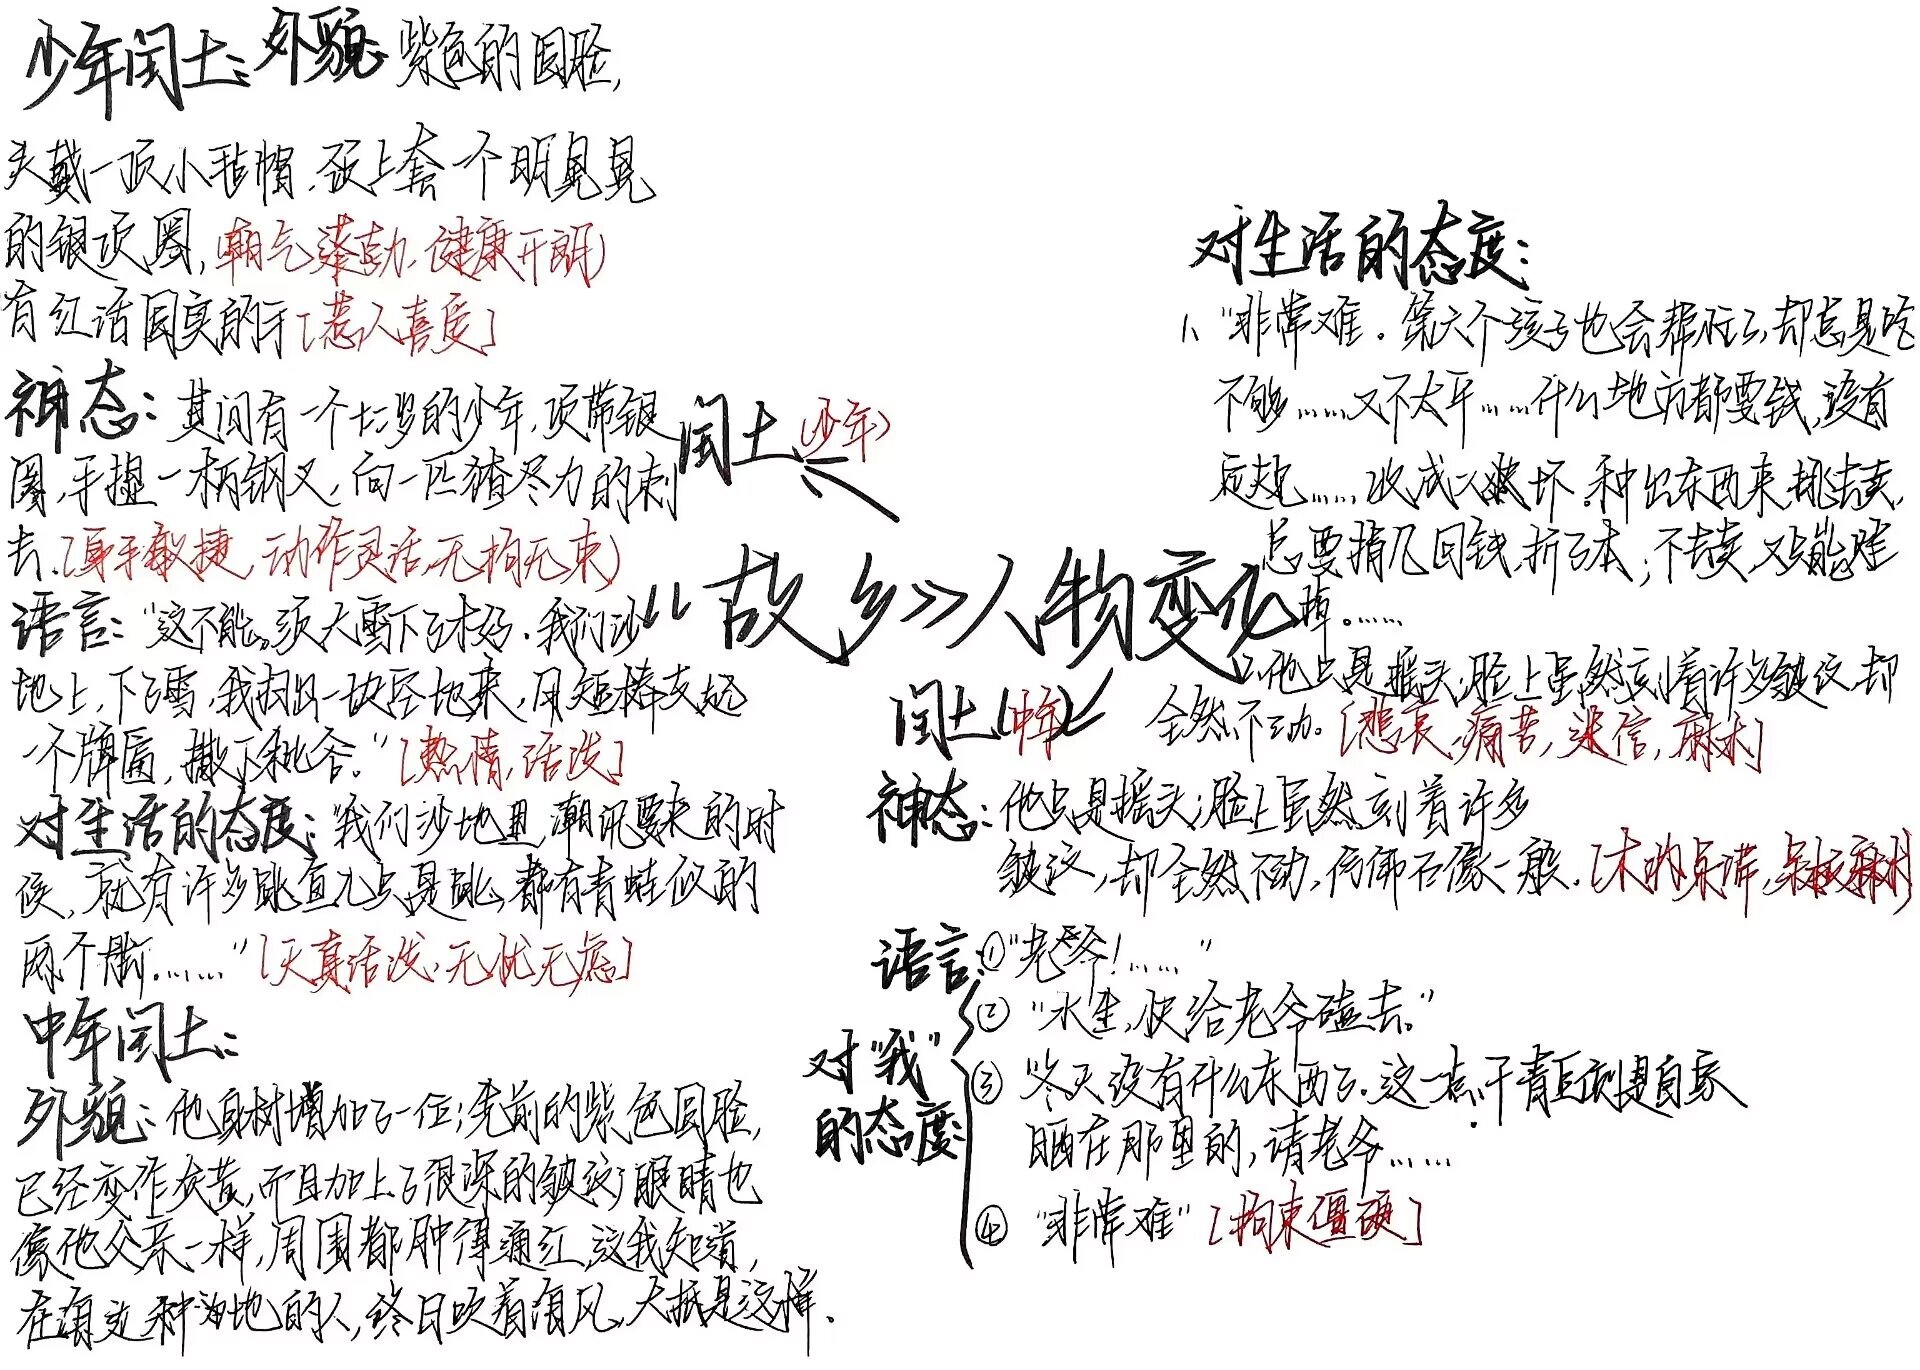 少年闰土：外貌：紫色的圆脸，
头戴一顶小毡帽，颈上套一个明晃晃
的银项圈，(朝气蓬勃，健康开朗)
有红活圆实的手[惹人喜爱]
神态：其间有一个十一二岁的少年，项带银
圈，手捏一柄钢叉，向一匹猹尽力的刺
去。[身手敏捷，动作灵活，无拘无束)
语言："这不能。须大雪下了才好。我们沙
地上，下了雪，我扫出一块空地来，用短棒支起
一个大牌匾，撒下秕谷。"[热情，活泼]
对生活的态度："我们沙地里，潮汛要来的时
候，就有许多跳鱼儿只是跳，都有青蛙似的
两个脚。……"[天真活泼，无忧无虑]
中年闰土：
外貌：他身材增加了一倍；先前的紫色圆脸，
已经变作灰黄，而且加上了很深的皱纹；眼睛也
像他父亲一样，周围都肿得通红，这我知道，
在海边种地的人，终日吹着海风，大抵是这样.
闰土(少年)
《故乡》人物变化
闰土(中年)
对生活的态度：
1、"非常难。第六个孩子也会帮忙了，却总是吃
不够……又不太平……什么地方都要钱，没有
定规……收成又坏。种出东西来，挑去卖，
总要捐几回钱，折了本；不去卖，又只能烂
掉。……
2.他只是摇头；脸上虽然刻着许多皱纹，却
全然不动。[悲哀，痛苦，迷信，麻木]
神态：他只是摇头；脸上虽然刻着许多
皱纹，却全然不动，仿佛石像一般。[木讷呆滞，麻木)
语言：①"老爷！……"
②"水生，快给老爷磕去。"
对"我"
的态度：
③ 冬天没有什么东西了。这一点干青豆倒是自家
晒在那里的，请老爷……
④ "非常难"[拘束僵硬]